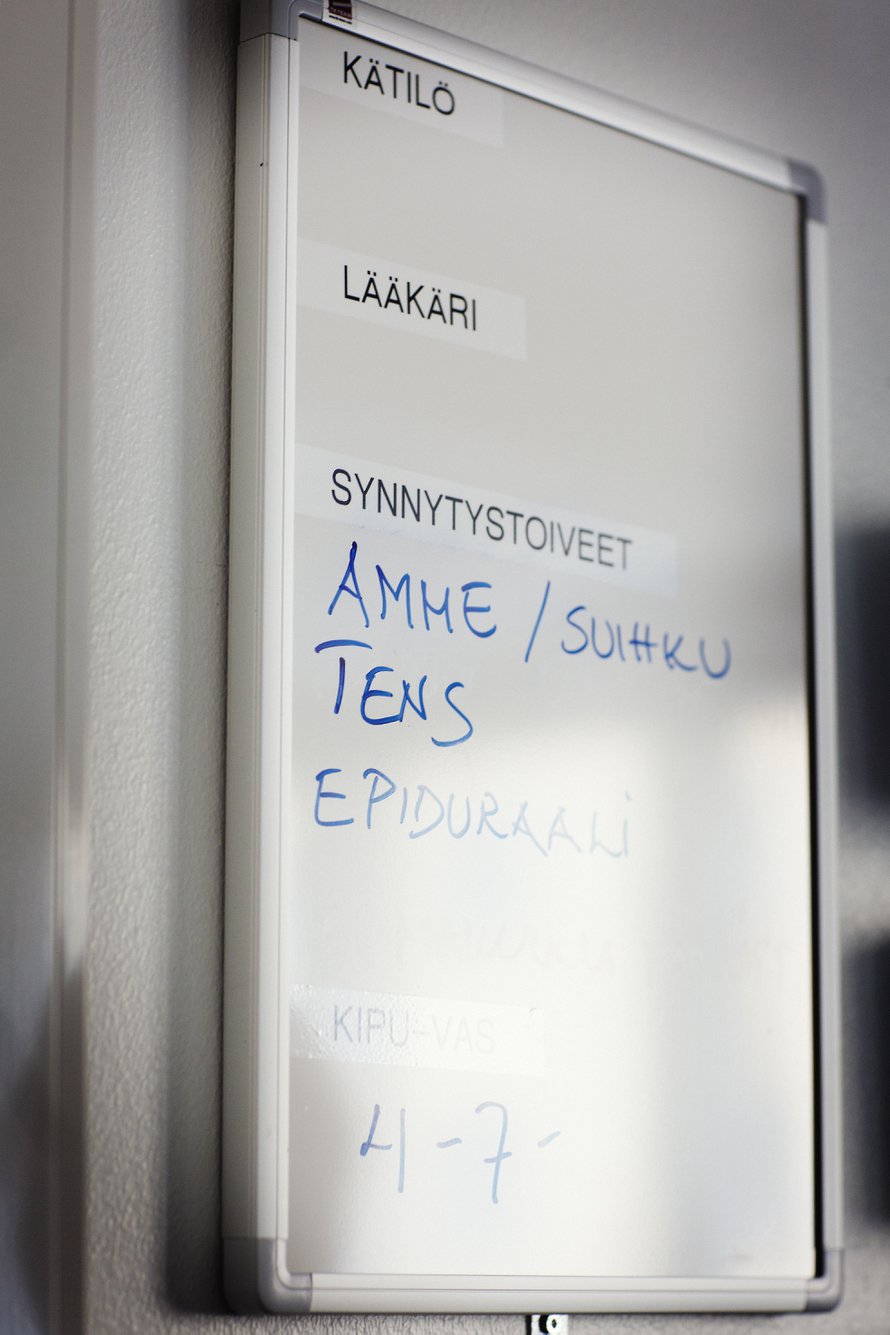 KÄTILÖ
LÄÄKÄRI
SYNNYTYSTOIVEET
AMME / SUIHKU
TENS
EPIDURAALI
KIPU-VAS
4-7-